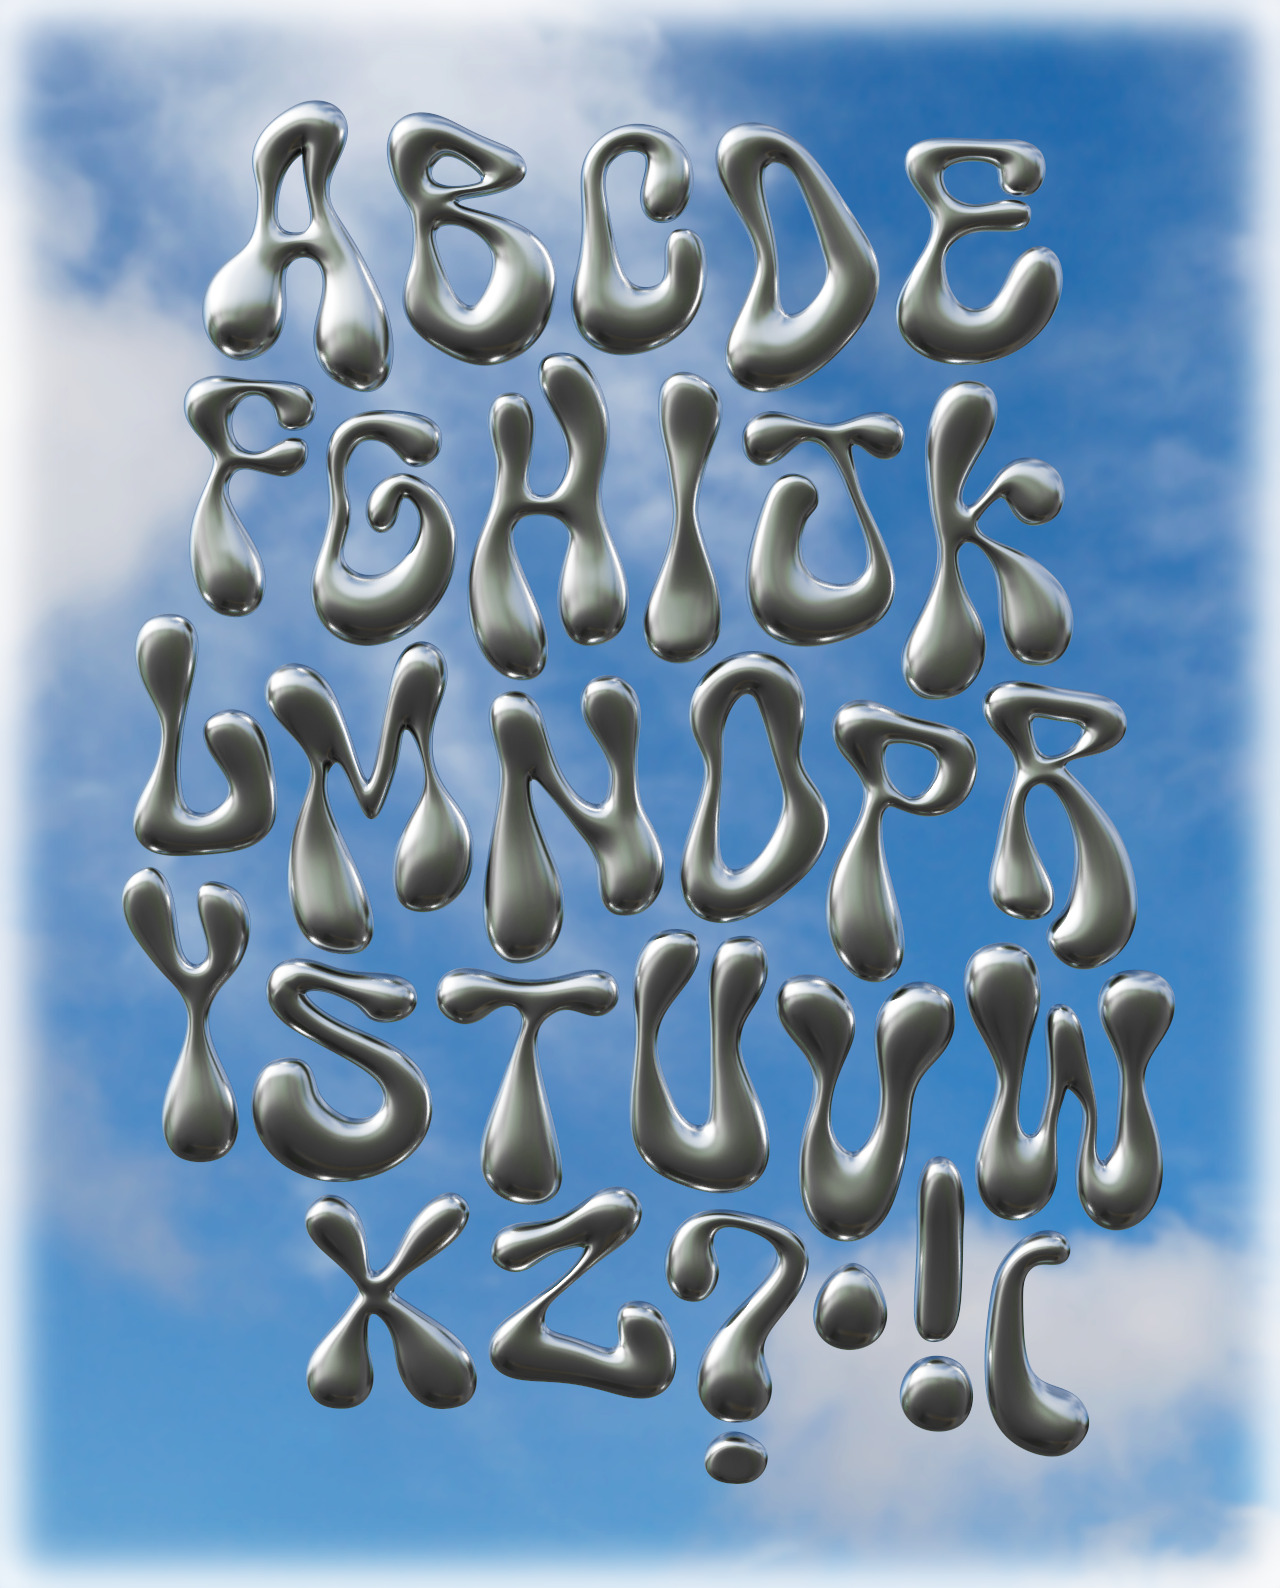 ABCDE
FGHIJK
LMNOPR
YSTUVW
XZ?.!(